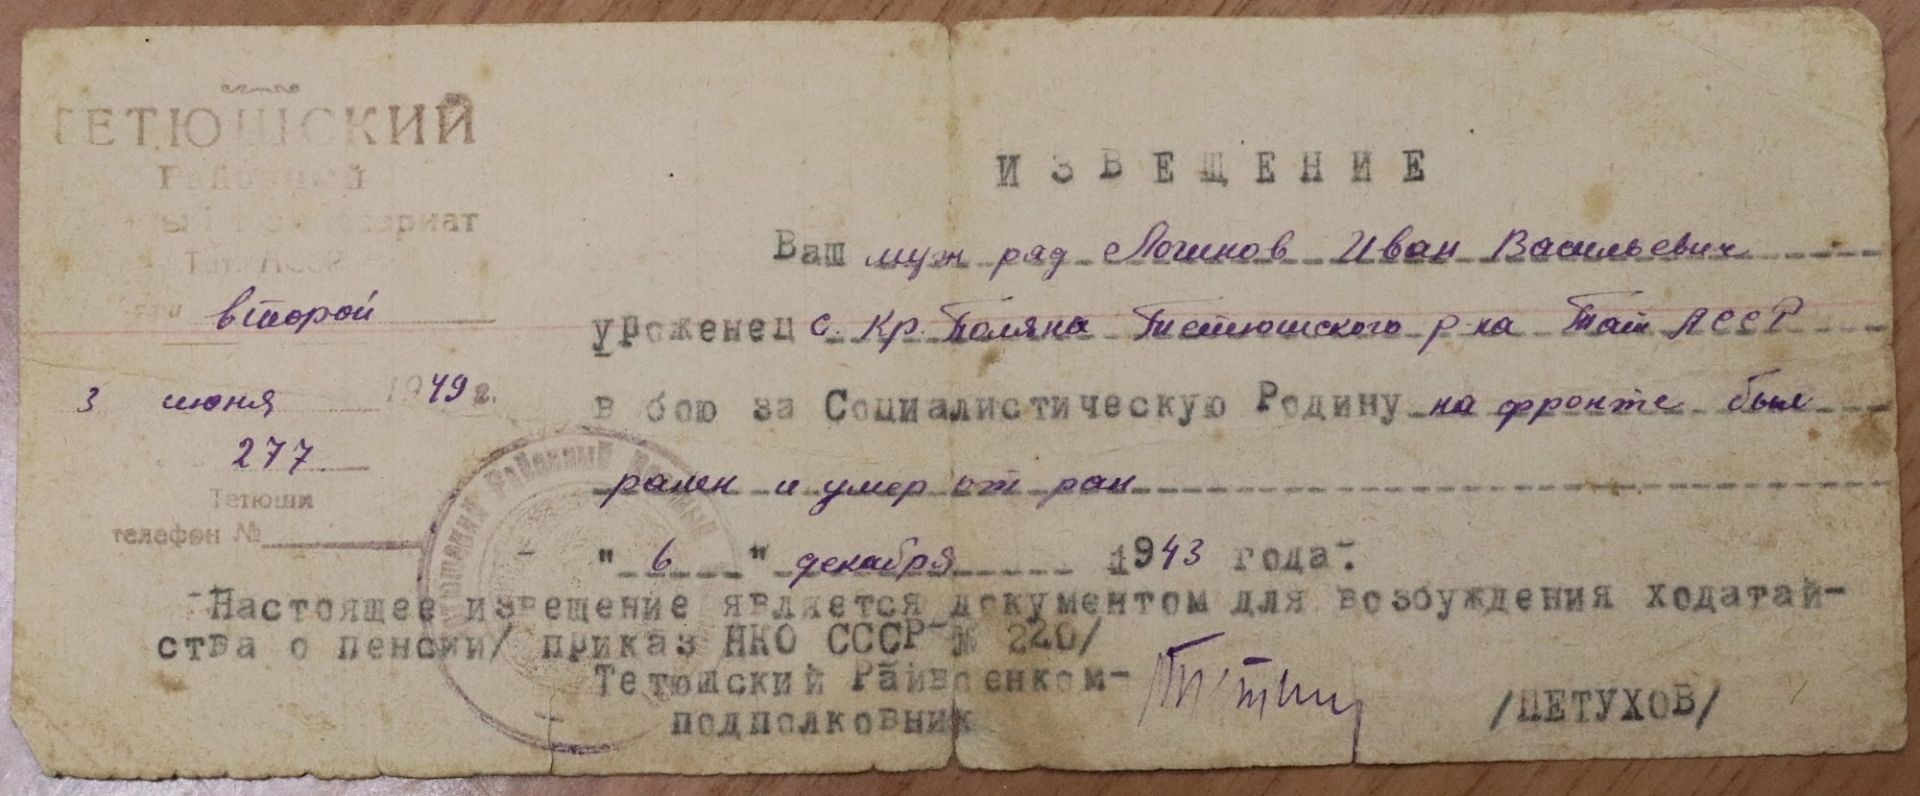 ТЕТЮШСКИЙ
Районный
комиссариат
Тат. АССР
второй
3 июня 1949 г.
277
Тетюши
телефон №
ИЗВЕЩЕНИЕ
Ваш муж ряд Логинов Иван Васильевич
уроженец с. Кр. Поляна Тетюшского р-на Тат АССР
в бою за Социалистическую Родину на фронте был
ранен и умер от ран
"6" декабря 1943 года.
Настоящее извещение является документом для возбуждения ходатай-
ства о пенсии/ приказ НКО СССР № 220/
Тетюшский Райвоенком-
подполковник /ПЕТУХОВ/
РАЙОННЫЙ ВОЕННЫЙ